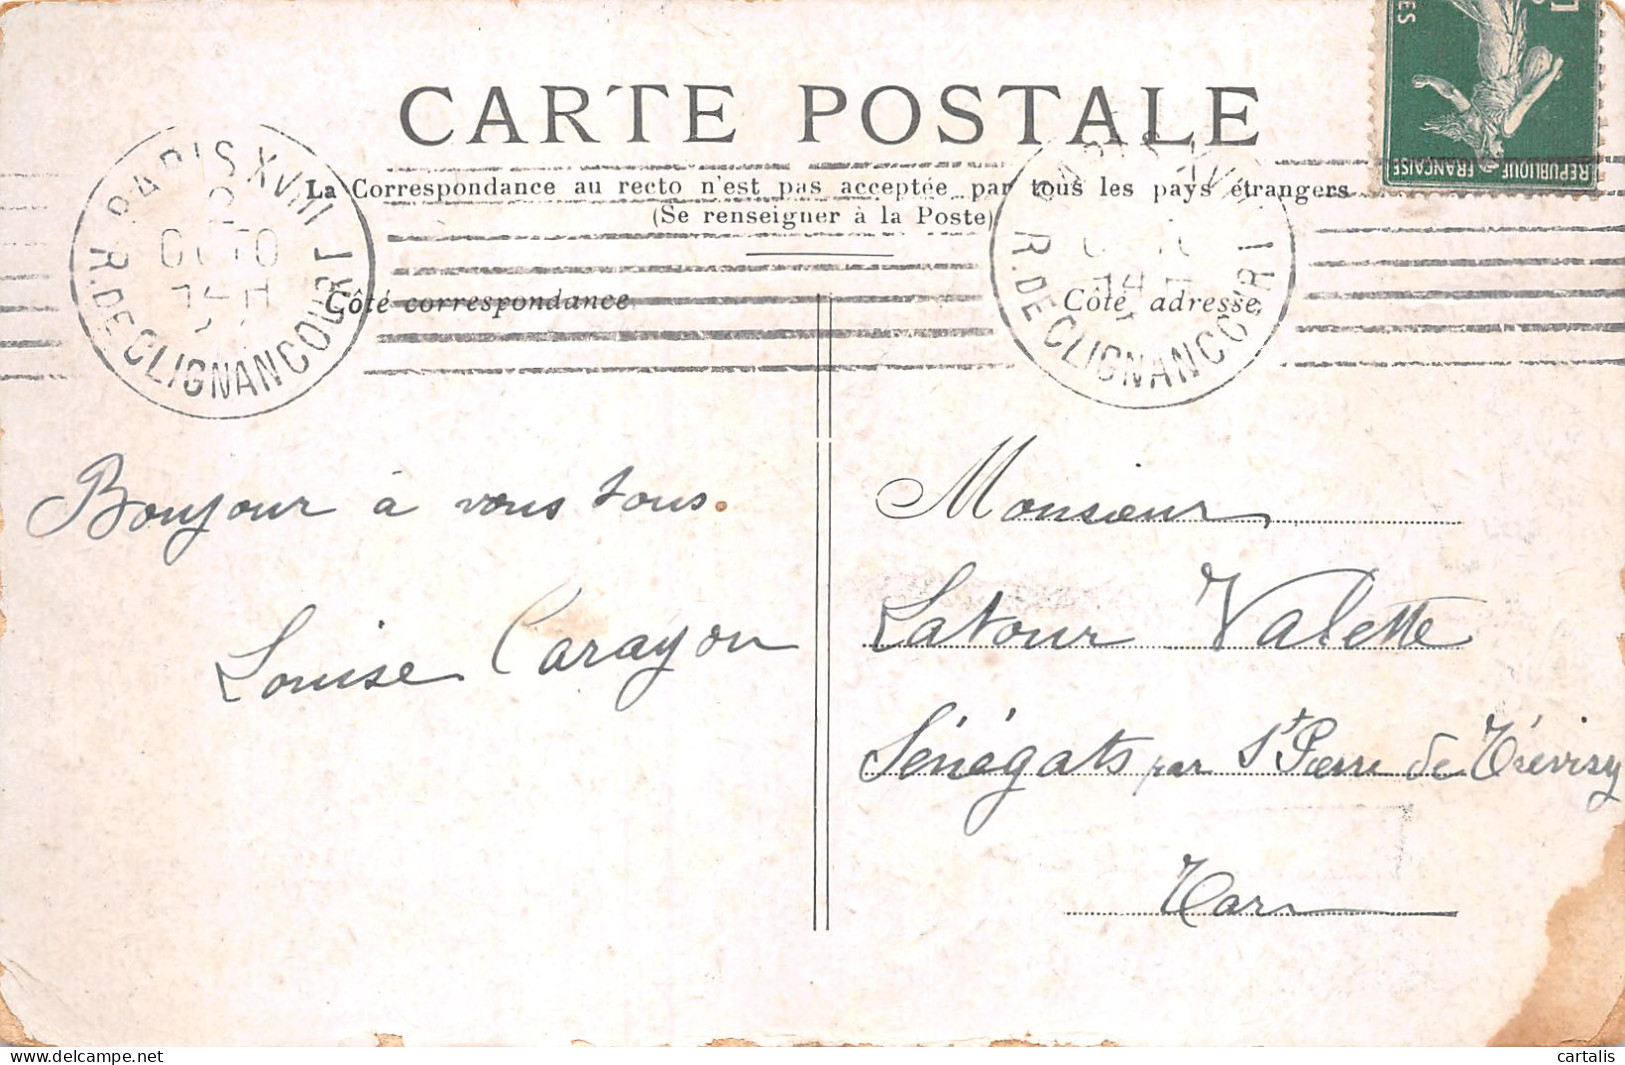 CARTE POSTALE
La Correspondance au recto n'est pas acceptée par tous les pays étrangers
(Se renseigner à la Poste)
PARIS XVIII
R. DE CLIGNANCOURT
PARIS XVIII
R. DE CLIGNANCOURT
REPUBLIQUE FRANÇAISE
Côté correspondance
Côté adresse
Bonjour à vous tous.
Louise Carayon
Monsieur
Latour Valette
Sénégats par St Pierre de Trévisy
Tarn
cartalis